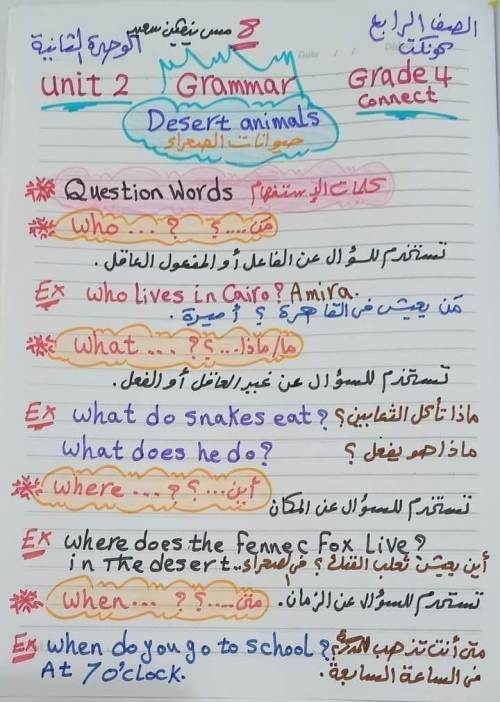 8 مس نيفين سعيد
الصف الرابع
كونكت
الوحدة الثانية
Unit 2 Grammar Grade 4
Connect
Desert animals
حيوانات الصحراء
Question Words كلمات الإستفهام
Who ... ? مَن .... ؟
تستخدم للسؤال عن الفاعل أو المفعول العاقل .
Ex who lives in Cairo? Amira.
مَن يعيش فى القاهرة ؟ أميرة .
what ... ? ما/ماذا... ؟
تستخدم للسؤال عن غير العاقل أو الفعل.
Ex what do snakes eat? ماذا تأكل الثعابين ؟
what does he do? ماذا هو يفعل ؟
where ... ? أين ... ؟
تستخدم للسؤال عن المكان
Ex where does the fennec fox Live?
in The desert.. أين يعيش ثعلب الفنك ؟ فى صحراء
when... ? متى ..... ؟ تستخدم للسؤال عن الزمان.
Ex when do you go to school? متى أنت تذهب للمدرسة؟
At 7 o'clock. فى الساعة السابعة .